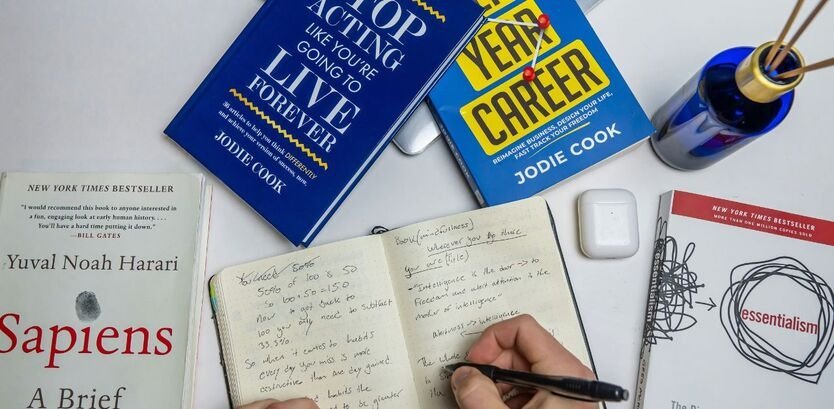 STOP
ACTING
LIKE YOU'RE
GOING TO
LIVE
FOREVER
36 articles to help you think DIFFERENTLY
and achieve your version of success, now.
JODIE COOK
YEAR
CAREER
REIMAGINE BUSINESS, DESIGN YOUR LIFE,
FAST TRACK YOUR FREEDOM
JODIE COOK
NEW YORK TIMES BESTSELLER
"I would recommend this book to anyone interested in
a fun, engaging look at early human history. . . .
You'll have a hard time putting it down."
—BILL GATES
Yuval Noah Harari
Sapiens
A Brief
50%
50% of 100 is 50
So 100+50=150
Now to get back to
100 you only need to subtract
33.3%
So when it comes to habits
every day you miss is more
destructive than one day gained.
habits the
to be greater
Book (mindfulness)
Wherever you go there
you are (title)
-"Intelligence is the door → to
freedom and alert attention is the
mother of intelligence"
Alertness → intelligence
The whole
NEW YORK TIMES BESTSELLER
MORE THAN ONE MILLION COPIES SOLD
essentialism
essentialism